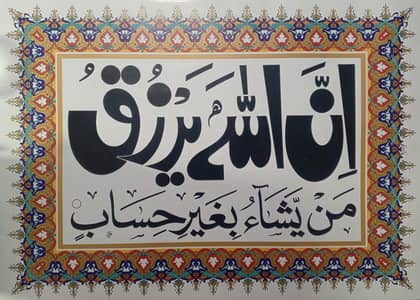 اِنَّ اللّٰهَ يَرْزُقُ
مَنْ يَّشَآءُ بِغَيْرِ حِسَابٍ